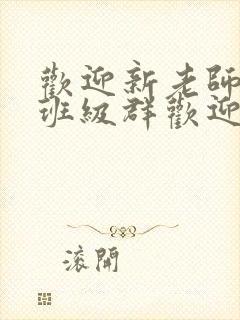 歡迎新老師
班級群歡迎
滾開